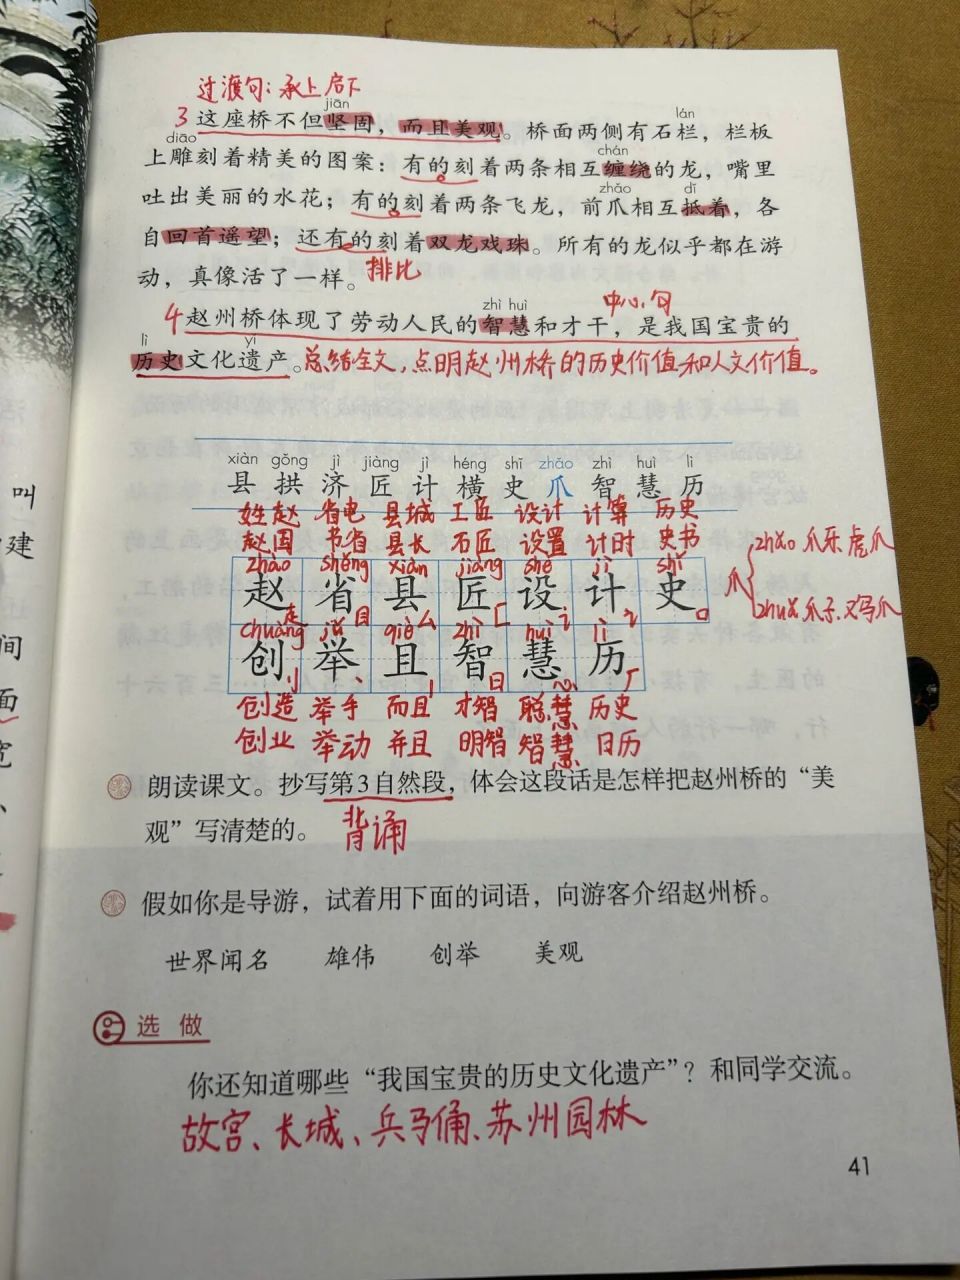 过渡句：承上启下
jiān lán
3 这座桥不但坚固，而且美观。桥面两侧有石栏，栏板
diāo chán
上雕刻着精美的图案：有的刻着两条相互缠绕的龙，嘴里
zhǎo dǐ
吐出美丽的水花；有的刻着两条飞龙，前爪相互抵着，各
自回首遥望；还有的刻着双龙戏珠。所有的龙似乎都在游
动，真像活了一样。
排比
zhì huì 中心句
4 赵州桥体现了劳动人民的智慧和才干，是我国宝贵的
lì yí
历史文化遗产。总结全文，点明赵州桥的历史价值和人文价值。
xiàn gǒng jì jiàng jì héng shǐ zhǎo zhì huì lì
县 拱 济 匠 计 横 史 爪 智 慧 历
姓赵 省电 县城 工匠 设计 计算 历史
赵国 节省 县长 石匠 设置 计时 史书
zhào shěng xiàn jiàng shè jì shǐ
赵 省 县 匠 设 计 史
走 目 厶 匚 讠 讠 口
爪 zhǎo 爪牙 虎爪
zhuǎ 爪子 鸡爪
chuàng jǔ qiě zhì huì lì
创 举 且 智 慧 历
刂 丶 丨 日 心 厂
创造 举手 而且 才智 聪慧 历史
创业 举动 并且 明智 智慧 日历
朗读课文。抄写第3自然段，体会这段话是怎样把赵州桥的“美
观”写清楚的。 背诵
假如你是导游，试着用下面的词语，向游客介绍赵州桥。
世界闻名 雄伟 创举 美观
选做
你还知道哪些“我国宝贵的历史文化遗产”？和同学交流。
故宫、长城、兵马俑、苏州园林
41
叫
建
间
面
宽